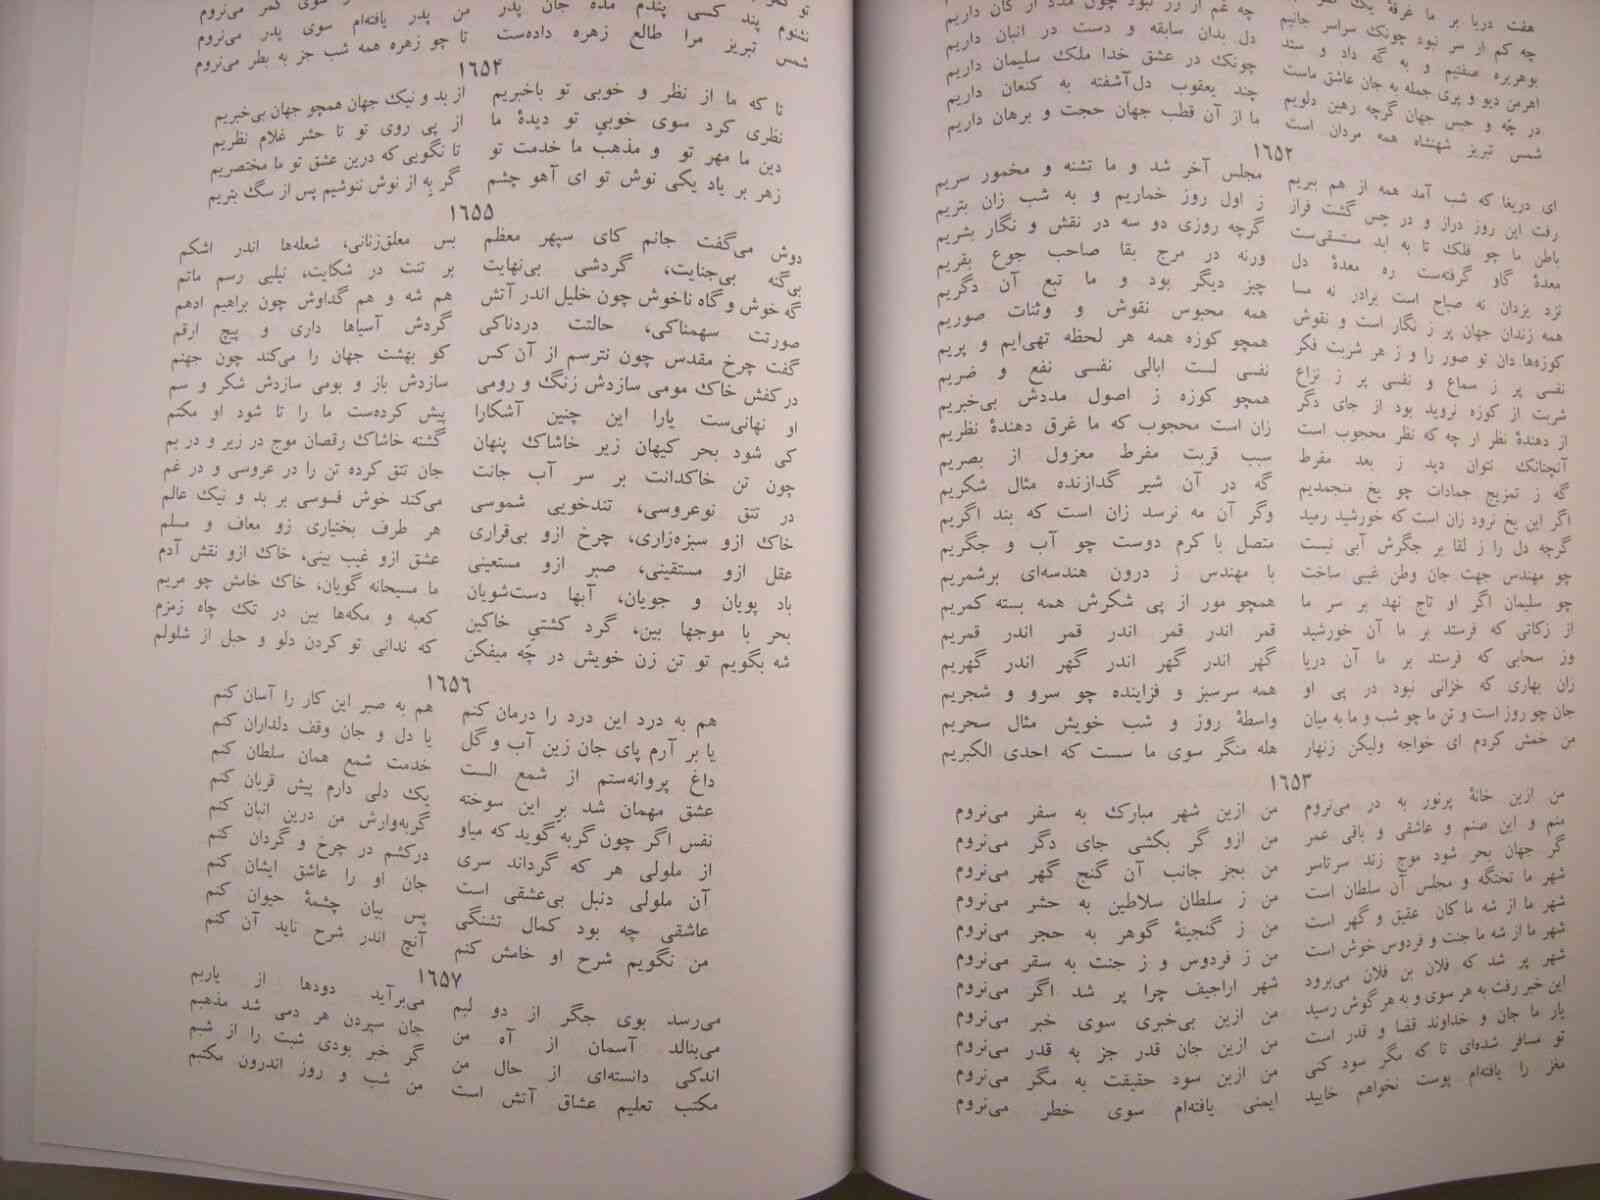 هفت دریا بر ما غرقهٔ یک
چه غم ار زر نبود چون مدد از کان داریم
چه کم از سر نبود چونک سراسر جانیم
دل بدان سابقه و دست در انبان داریم
بوهریره صفتیم و به گه داد و ستد
چونک در عشق خدا ملک سلیمان داریم
اهرمن دیو و پری جمله به جان عاشق ماست
چند یعقوب دل‌آشفته به کنعان داریم
در چه و حبس جهان گرچه رهین دلویم
ما از آن قطب جهان حجت و برهان داریم
شمس تبریز شهنشاه همه مردان است
۱۶۵۲
ای دریغا که شب آمد همه از هم ببریم
مجلس آخر شد و ما تشنه و مخمور سریم
رفت این روز دراز و در حس گشت فراز
ز اول روز خماریم و به شب زان بتریم
باطن ما چو فلک تا به ابد مستسقی‌ست
گرچه روزی دو سه در نقش و نگار بشریم
معدهٔ گاو گرفته‌ست ره معدهٔ دل
ورنه در مرج بقا صاحب جوع بقریم
نزد یزدان نه صباح است برادر نه مسا
چیز دیگر بود و ما تبع آن دگریم
همه زندان جهان پر ز نگار است و نقوش
همه محبوس نقوش و وثنات صوریم
کوزه‌ها دان تو صور را و ز هر شربت فکر
همچو کوزه همه هر لحظه تهی‌ایم و پریم
نفسی پر ز سماع و نفسی پر ز نزاع
نفسی لست ابالی نفسی نفع و ضریم
شربت از کوزه نروید بود از جای دگر
همچو کوزه ز اصول مددش بی‌خبریم
از دهندهٔ نظر ار چه که نظر محجوب است
زان است محجوب که ما غرق دهندهٔ نظریم
آنچنانک نتوان دید ز بعد مفرط
سبب قربت مفرط معزول از بصریم
گه ز تمزیج جمادات چو یخ منجمدیم
گه در آن شیر گدازنده مثال شکریم
اگر این یخ نرود زان است که خورشید رمید
وگر آن مه نرسد زان است که بند اگریم
گرچه دل را ز لقا بر جگرش آبی نیست
متصل با کرم دوست چو آب و جگریم
چو مهندس جهت جان وطن غیبی ساخت
با مهندس ز درون هندسه‌ای برشمریم
چو سلیمان اگر او تاج نهد بر سر ما
همچو مور از پی شکرش همه بسته کمریم
از زکاتی که فرستد بر ما آن خورشید
قمر اندر قمر اندر قمر اندر قمریم
وز سحابی که فرستد بر ما آن دریا
گهر اندر گهر اندر گهر اندر گهریم
زان بهاری که خزانی نبود در پی او
همه سرسبز و فزاینده چو سرو و شجریم
جان چو روز است و تن ما چو شب و ما به میان
واسطهٔ روز و شب خویش مثال سحریم
من خمش کردم ای خواجه ولیکن زنهار
هله منگر سوی ما سست که احدی الکبریم
۱۶۵۳
من ازین خانهٔ پرنور به در می‌نروم
من ازین شهر مبارک به سفر می‌نروم
منم و این صنم و عاشقی و باقی عمر
من ازو گر بکشی جای دگر می‌نروم
گر جهان بحر شود موج زند سرتاسر
من بجز جانب آن گنج گهر می‌نروم
شهر ما تختگه و مجلس آن سلطان است
من ز سلطان سلاطین به حشر می‌نروم
شهر ما از شه ما کان عقیق و گهر است
من ز گنجینهٔ گوهر به حجر می‌نروم
شهر ما از شه ما جنت و فردوس خوش است
من ز فردوس و ز جنت به سقر می‌نروم
شهر پر شد که فلان بن فلان می‌برود
شهر اراجیف چرا پر شد اگر می‌نروم
این خبر رفت به هر سوی و به هر گوش رسید
من ازین بی‌خبری سوی خبر می‌نروم
یار ما جان و خداوند قضا و قدر است
من ازین جان قدر جز به قدر می‌نروم
تو مسافر شده‌ای تا که مگر سود کنی
من ازین سود حقیقت به مگر می‌نروم
مغز را یافته‌ام پوست نخواهم خایید
ایمنی یافته‌ام سوی خطر می‌نروم
سوی کمر می‌نروم
نشنوم پند کسی پندم مده جان پدر
من پدر یافته‌ام سوی پدر می‌نروم
شمس تبریز مرا طالع زهره داده‌ست
تا چو زهره همه شب جز به بطر می‌نروم
۱۶۵۴
تا که ما از نظر و خوبی تو باخبریم
از بد و نیک جهان همچو جهان بی‌خبریم
نظری کرد سوی خوبی تو دیدهٔ ما
از پی روی تو تا حشر غلام نظریم
دین ما مهر تو و مذهب ما خدمت تو
تا نگویی که درین عشق تو ما مختصریم
زهر بر یاد یکی نوش تو ای آهو چشم
گر به از نوش ننوشیم پس از سگ بتریم
۱۶۵۵
دوش می‌گفت جانم کای سپهر معظم
بس معلق‌زنانی، شعله‌ها اندر اشکم
بی‌گنه بی‌جنایت، گردشی بی‌نهایت
بر تنت در شکایت، نیلیی رسم ماتم
گه خوش و گاه ناخوش چون خلیل اندر آتش
هم شه و هم گداوش چون براهیم ادهم
صورتت سهمناکی، حالتت دردناکی
گردش آسیاها داری و پیچ ارقم
گفت چرخ مقدس چون نترسم از آن کس
کو بهشت جهان را می‌کند چون جهنم
در کفش خاک مومی سازدش زنگ و رومی
سازدش باز و بومی سازدش شکر و سم
او نهانی‌ست یارا این چنین آشکارا
پیش کرده‌ست ما را تا شود او مکتم
کی شود بحر کیهان زیر خاشاک پنهان
گشته خاشاک رقصان موج در زیر و در بم
چون تن خاکدانت بر سر آب جانت
جان تتق کرده تن را در عروسی و در غم
در تتق نوعروسی، تندخویی شموسی
می‌کند خوش فسوسی بر بد و نیک عالم
خاک ازو سبزه‌زاری، چرخ ازو بی‌قراری
هر طرف بختیاری زو معاف و مسلم
عقل ازو مستقینی، صبر ازو مستعینی
عشق ازو غیب بینی، خاک ازو نقش آدم
باد پویان و جویان، آبها دست‌شویان
ما مسیحانه گویان، خاک خامش چو مریم
بحر با موجها بین، گرد کشتی خاکین
کعبه و مکه‌ها بین در تک چاه زمزم
شه بگویم تو تن زن خویش در چه میفکن
که ندانی تو کردن دلو و حبل از شلولم
۱۶۵۶
هم به درد این درد را درمان کنم
هم به صبر این کار را آسان کنم
یا بر آرم پای جان زین آب و گل
یا دل و جان وقف دلداران کنم
داغ پروانه‌ستم از شمع الست
خدمت شمع همان سلطان کنم
عشق مهمان شد بر این سوخته
یک دلی دارم پیش قربان کنم
نفس اگر چون گربه گوید که میاو
گربه‌وارش من درین انبان کنم
از ملولی هر که گرداند سری
درکشم در چرخ و گردان کنم
آن ملولی دنبل بی‌عشقی است
جان او را عاشق ایشان کنم
عاشقی چه بود کمال تشنگی
پس بیان چشمهٔ حیوان کنم
من نگویم شرح او خامش کنم
آنچ اندر شرح ناید آن کنم
۱۶۵۷
می‌رسد بوی جگر از دو لبم
می‌برآید دودها از یاربم
می‌بنالد آسمان از آه من
جان سپردن هر دمی شد مذهبم
اندکی دانسته‌ای از حال من
گر خبر بودی شبت را از شبم
مکتب تعلیم عشاق آتش است
من شب و روز اندرون مکتبم